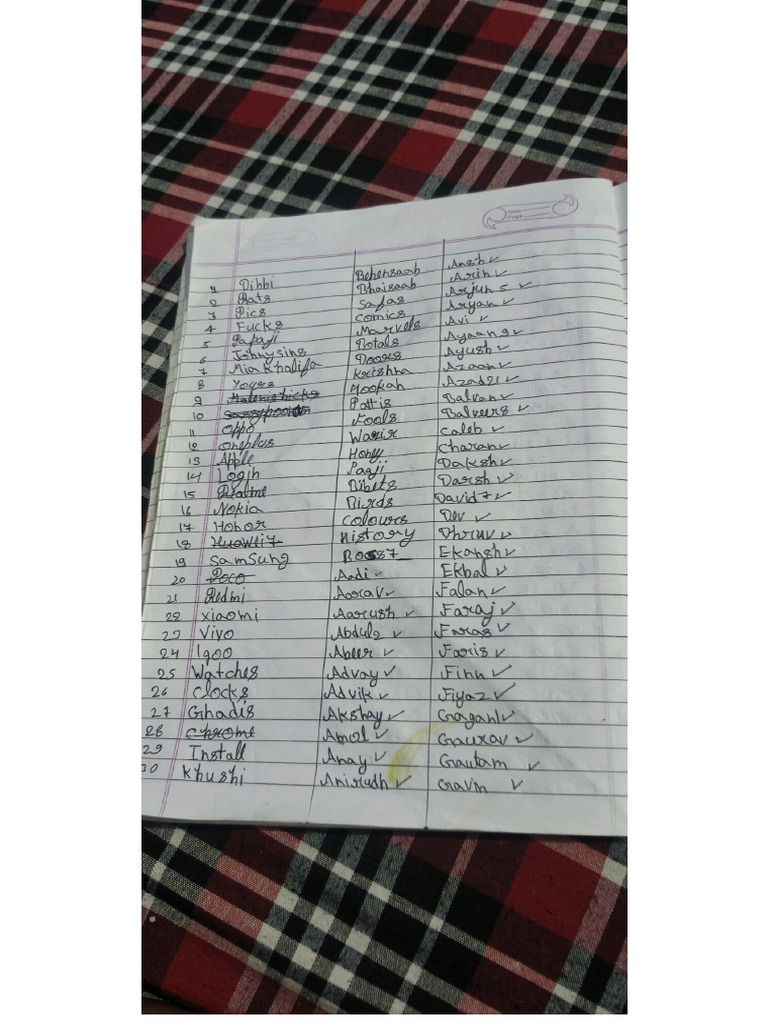 1 Dibbi Behensaab Ansh ✓
2 Rats Bhaisaab Arin ✓
3 Pics Safas Arjun 5 ✓
4 Fucks Comics Aryan ✓
5 Papaji Marvels Avi ✓
6 Johnysins Botals Ayaang ✓
7 Mia Khalifa Doors Ayush ✓
8 Yours Krishna Azaan ✓
9 Hookah Azad21 ✓
10 Pattis Balvan ✓
11 Oppo Fools Balveers ✓
12 Oneplus Wazir Caleb ✓
13 Apple Honey Charan ✓
14 Login Pagji Daksh ✓
15 Realme Bibets Darsh ✓
16 Nokia Birds David 7 ✓
17 Honor Colours Dev ✓
18 Huawei7 History Dhruv ✓
19 Samsung Boss7 Ekansh ✓
20 Poco Aadi ✓ Ekbal ✓
21 Redmi Aarav ✓ Falan ✓
22 xiaomi Aarush ✓ Faraj ✓
23 Vivo Abdul2 ✓ Faras ✓
24 Iqoo Abeer ✓ Faris ✓
25 Watches Advay ✓ Finn ✓
26 Clocks Advik ✓ Fiyaz ✓
27 Ghadis Akshay ✓ Gagan ✓
28 Chrome Amol ✓ Gaurav ✓
29 Install Anay ✓ Gautam ✓
30 Khushi Anirudh ✓ Gavin ✓